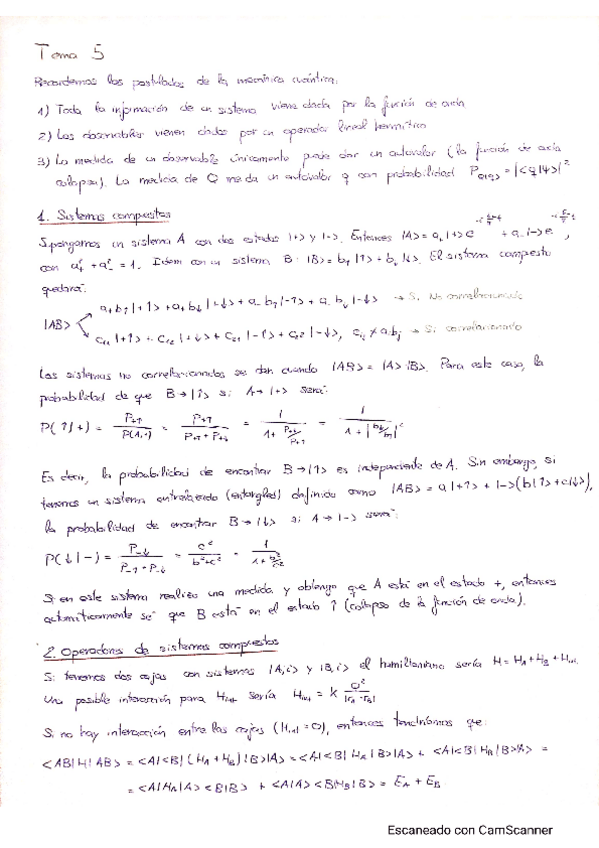 Tema 5
Recordemos los postulados de la mecánica cuántica:
1) Toda la información de un sistema viene dada por la función de onda
2) Los observables vienen dados por un operador lineal hermítico
3) La medida de un observable únicamente puede dar un autovalor (la función de onda
colapsa). La medida de Q me da un autovalor q con probabilidad P_Q(q) = |<q|ψ>|²
1. Sistemas compuestos
Supongamos un sistema A con dos estados |+> y |->. Entonces |A> = a₊|+> e + a₋|-> e ,
con a₊² + a₋² = 1. Idem con un sistema B: |B> = b↑|↑> + b↓|↓>. El sistema compuesto
quedará:
|AB>
a₊b↑|+↑> + a₊b↓|+↓> + a₋b↑|-↑> + a₋b↓|-↓> → Si No correlacionado
c₁₁|+↑> + c₁₂|+↓> + c₂₁|-↑> + c₂₂|-↓>, cᵢⱼ ≠ aᵢbⱼ → Si correlacionado
Los sistemas no correlacionados se dan cuando |AB> = |A>|B>. Para este caso, la
probabilidad de que B→|↑> si A→|+> será:
P(↑|+) = P₊↑ / P(A,+) = P₊↑ / (P₊↑ + P₊↓) = 1 / (1 + P₊↓/P₊↑) = 1 / (1 + |b↓/b↑|²)
Es decir, la probabilidad de encontrar B→|↑> es independiente de A. Sin embargo, si
tenemos un sistema entrelazado (entangled) definido como |AB> = a|+↑> + |->(b|↑> + c|↓>),
la probabilidad de encontrar B→|↓> si A→|-> será:
P(↓|-) = P₋↓ / (P₋↑ + P₋↓) = c² / (b² + c²) = 1 / (1 + b²/c²)
Si en este sistema realizo una medida y obtengo que A está en el estado +, entonces
automáticamente sé que B está en el estado ↑ (colapso de la función de onda).
2. Operadores de sistemas compuestos
Si tenemos dos cajas con sistemas |A,i> y |B,i> el hamiltoniano sería H = H_A + H_B + H_int.
Una posible interacción para H_int sería H_int = K Q² / |r_A - r_B|
Si no hay interacción entre las cajas (H_int = 0), entonces tendríamos que:
<AB|H|AB> = <A|<B|(H_A + H_B)|B>|A> = <A|<B|H_A|B>|A> + <A|<B|H_B|B>|A> =
= <A|H_A|A><B|B> + <A|A><B|H_B|B> = E_A + E_B
Escaneado con CamScanner